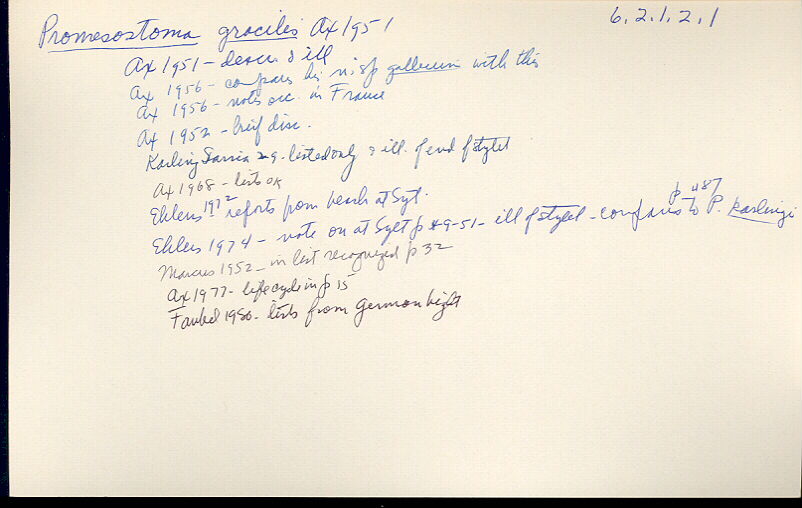 Promesostoma gracilis Ax 1951
6.2.1.2.1
Ax 1951 - descr & ill
Ax 1956 - compares his n. sp gallicum with this
Ax 1956 - notes occ. in France
Ax 1952 - brief disc.
Karling - listed only & ill. of end of stylet
Ax 1968 - lists ok
Ehlers 1972 reports from beach at Sylt.
p 487
Ehlers 1974 - note on at Sylt p 49-51 - ill of stylet - compares to P. karlingi
Marcus 1952 - in list recognized p 32
Ax 1977 - life cycle in p 15
Faubel 1980 - lists from German bight